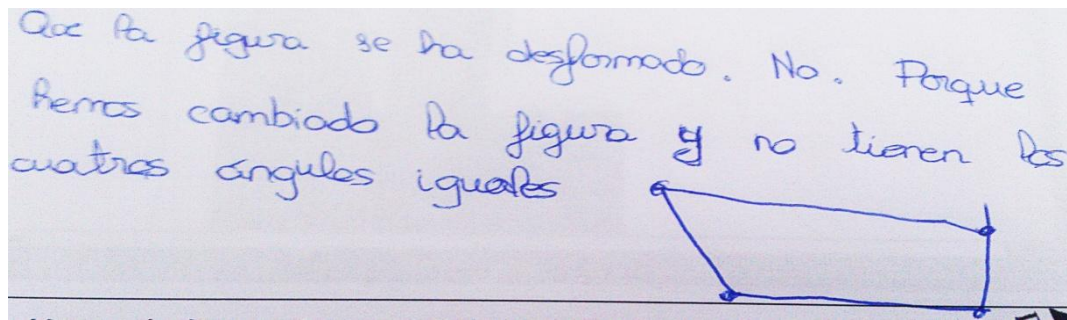 Que la figura se ha desformado. No. Porque
hemos cambiado la figura y no tienen los
cuatros ángulos iguales